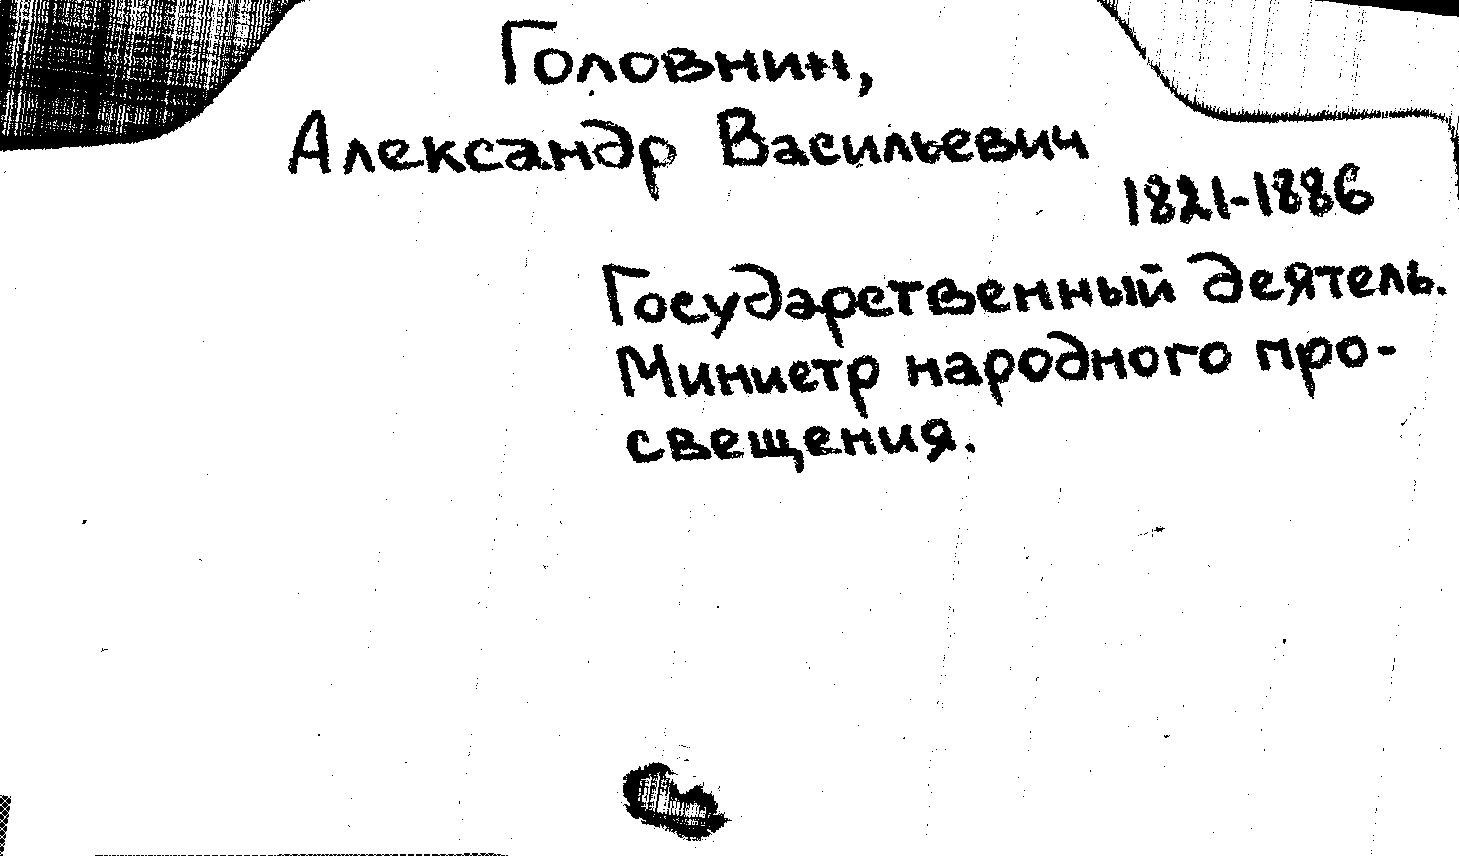 Головнин,
Александр Васильевич
1821-1886
Государственный деятель.
Министр народного про-
свещения.